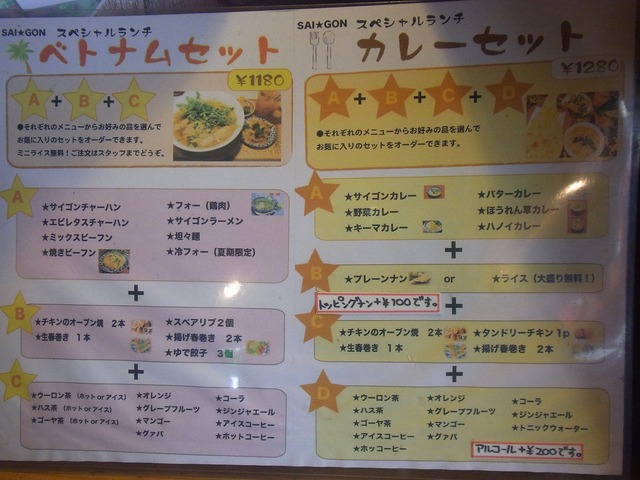 SAI★GON スペシャルランチ
ベトナムセット
¥1180
A + B + C
●それぞれのメニューからお好みの品を選んで
お気に入りのセットをオーダーできます。
ミニライス無料!ご注文はスタッフまでどうぞ。
A
★サイゴンチャーハン
★エビレタスチャーハン
★ミックスビーフン
★焼きビーフン
★フォー(鶏肉)
★サイゴンラーメン
★坦々麺
★冷フォー(夏期限定)
+
B
★チキンのオーブン焼 2本
★生春巻き 1本
★スペアリブ2個
★揚げ春巻き 2本
★ゆで餃子 3個
+
C
★ウーロン茶(ホット or アイス)
★ハス茶(ホット or アイス)
★ゴーヤ茶(ホット or アイス)
★オレンジ
★グレープフルーツ
★マンゴー
★グァバ
★コーラ
★ジンジャエール
★アイスコーヒー
★ホットコーヒー
SAI★GON スペシャルランチ
カレーセット
¥1280
A + B + C + D
●それぞれのメニューからお好みの品を選んで
お気に入りのセットをオーダーできます。
A
★サイゴンカレー
★野菜カレー
★キーマカレー
★バターカレー
★ほうれん草カレー
★ハノイカレー
+
B
★プレーンナン or ★ライス(大盛り無料!)
トッピングナン+¥100です。
+
C
★チキンのオーブン焼 2本
★生春巻き 1本
★タンドリーチキン 1p
★揚げ春巻き 2本
+
D
★ウーロン茶
★ハス茶
★ゴーヤ茶
★アイスコーヒー
★ホッコーヒー
★オレンジ
★グレープフルーツ
★マンゴー
★グァバ
★コーラ
★ジンジャエール
★トニックウォーター
アルコール+¥200です。